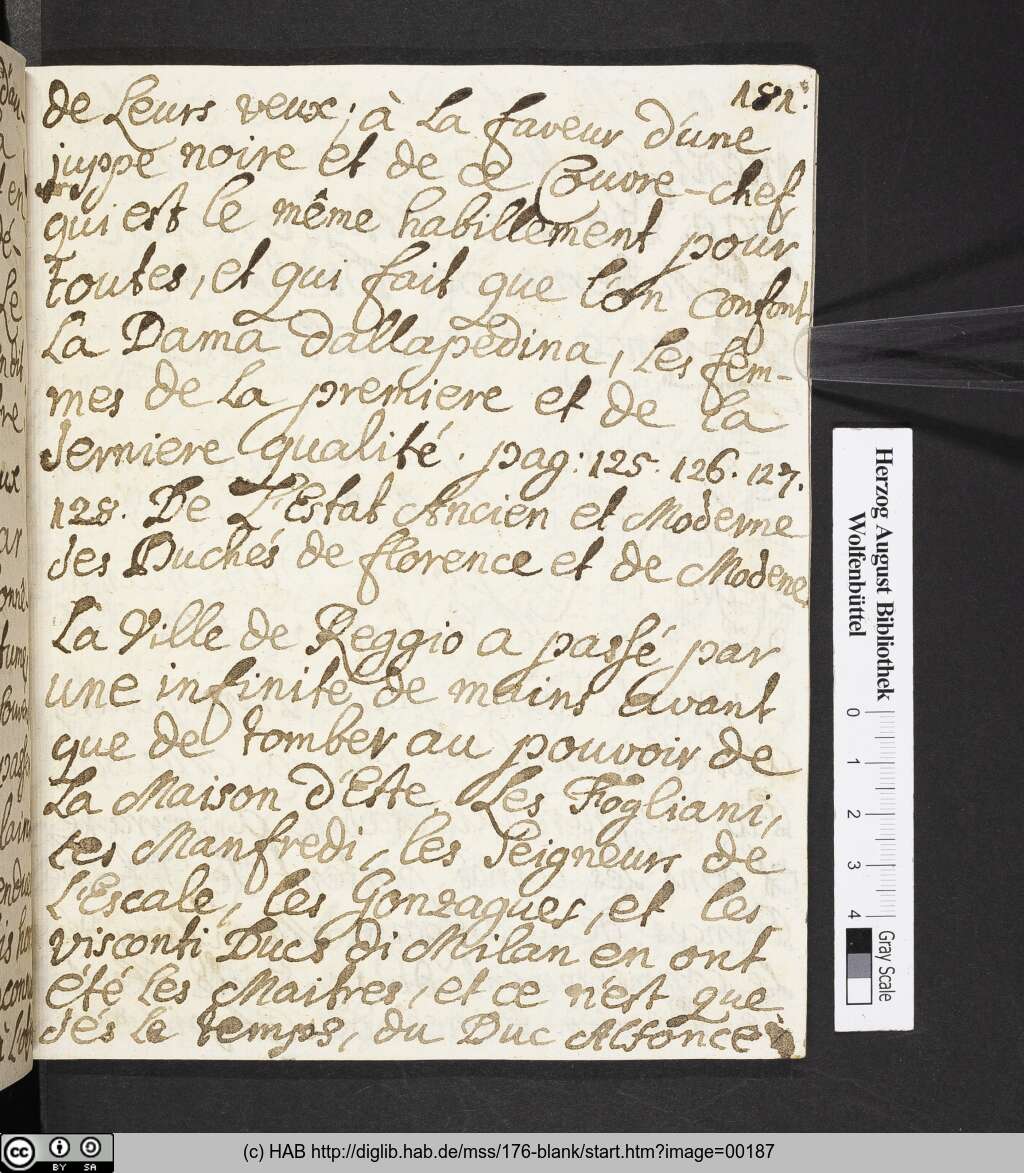 181.
de Leurs veux; à La faveur d'une
juppe noire et de ce Couvre-chef
qui est le même habillement pour
toutes, et qui fait que l'on confont
La Dama dallapedina, les fem-
mes de La premiere et de la
derniere qualité. pag: 125. 126. 127.
128. De L'Estat Ancien et Moderne
des Duchés de florence et de Modene.
La Ville de Reggio a passé par
une infinite de mains avant
que de tomber au pouvoir de
La Maison d'Este. Les Fogliani,
les Manfredi, les Seigneurs de
L'Escale, les Gonzagues, et les
visconti Ducs di Milan en ont
été les Maitres, et ce n'est que
dés le temps, du Duc Alfonce
Herzog August Bibliothek
Wolfenbüttel
0 1 2 3 4
Gray Scale
(c) HAB http://diglib.hab.de/mss/176-blank/start.htm?image=00187
cc BY SA